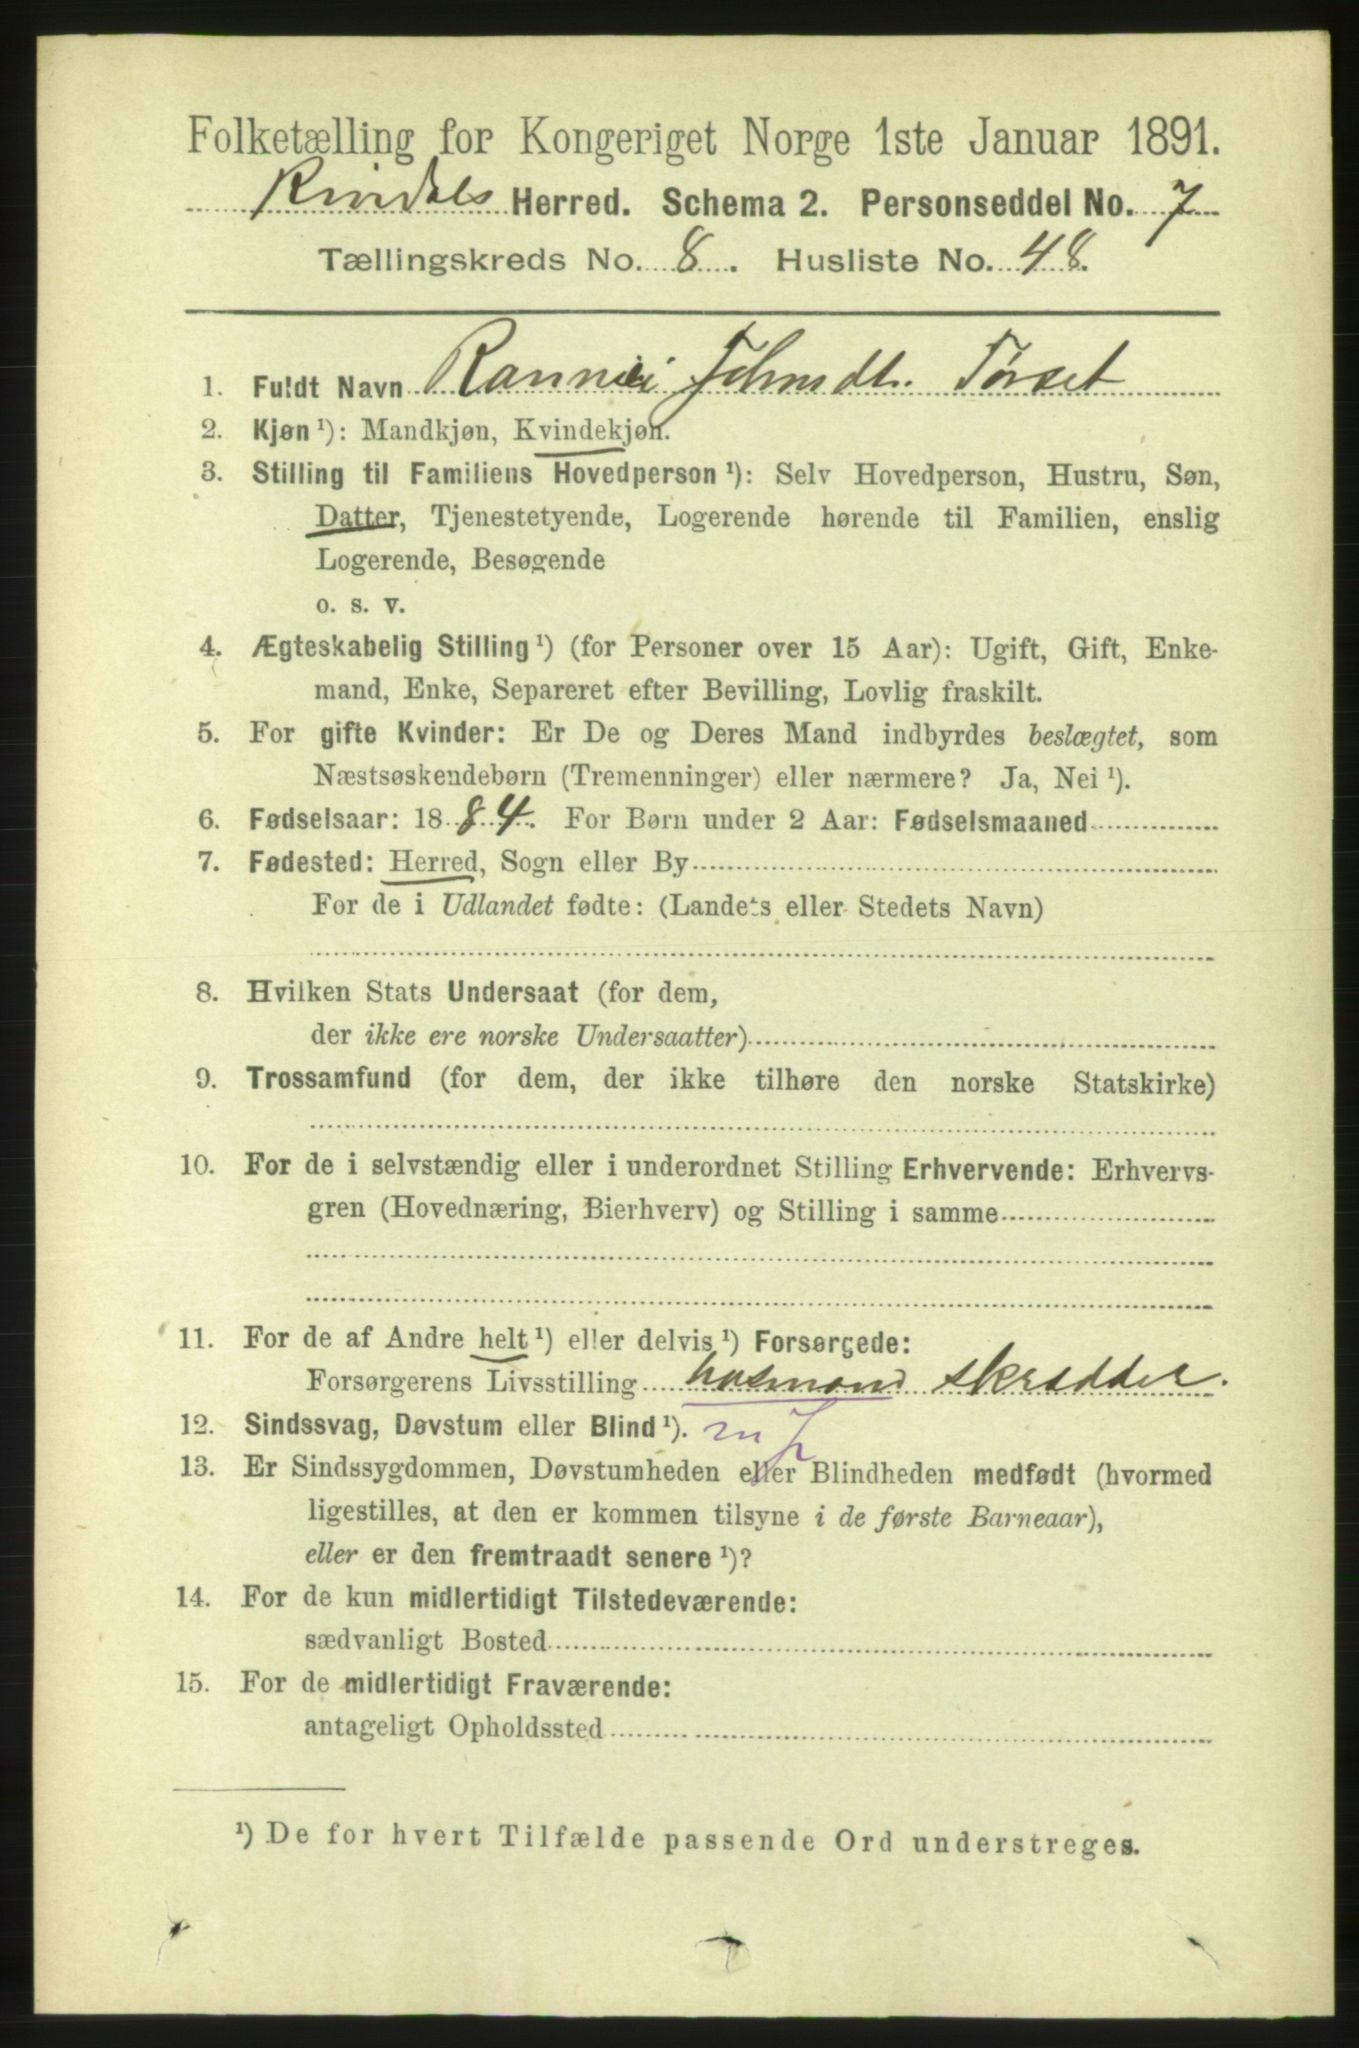 Folketælling for Kongeriget Norge 1ste Januar 1891.
Rindals Herred. Schema 2. Personseddel No. 7
Tællingskreds No. 8. Husliste No. 48.
1. Fuldt Navn Rannei Torset
2. Kjøn ¹): Mandkjøn, Kvindekjøn.
3. Stilling til Familiens Hovedperson ¹): Selv Hovedperson, Hustru, Søn,
Datter, Tjenestetyende, Logerende hørende til Familien, enslig
Logerende, Besøgende
o. s. v.
4. Ægteskabelig Stilling ¹) (for Personer over 15 Aar): Ugift, Gift, Enke-
mand, Enke, Separeret efter Bevilling, Lovlig fraskilt.
5. For gifte Kvinder: Er De og Deres Mand indbyrdes beslægtet, som
Næstsøskendebørn (Tremenninger) eller nærmere? Ja, Nei ¹).
6. Fødselsaar: 1884. For Børn under 2 Aar: Fødselsmaaned
7. Fødested: Herred, Sogn eller By
For de i Udlandet fødte: (Landets eller Stedets Navn)
8. Hvilken Stats Undersaat (for dem,
der ikke ere norske Undersaatter)
9. Trossamfund (for dem, der ikke tilhøre den norske Statskirke)
10. For de i selvstændig eller i underordnet Stilling Erhvervende: Erhvervs-
gren (Hovednæring, Bierhverv) og Stilling i samme
11. For de af Andre helt ¹) eller delvis ¹) Forsørgede:
Forsørgerens Livsstilling husmand skrædder.
12. Sindssvag, Døvstum eller Blind ¹).
13. Er Sindssygdommen, Døvstumheden eller Blindheden medfødt (hvormed
ligestilles, at den er kommen tilsyne i de første Barneaar),
eller er den fremtraadt senere ¹)?
14. For de kun midlertidigt Tilstedeværende:
sædvanligt Bosted
15. For de midlertidigt Fraværende:
antageligt Opholdssted
¹) De for hvert Tilfælde passende Ord understreges.